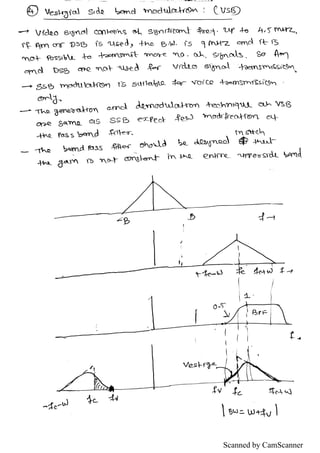 ④ Vestigial side band modulation: (VSB)
→ Video signal contains of significant freq. up to 4.5 MHz,
if Am or DSB is used, the B.W. is 9 MHz and it is
not possible to transmit more no. of signals. So Am
and DSB are not used for video signal transmission.
→ SSB modulation is suitable for voice transmission
only.
→ The generation and demodulation technique of VSB
are same as SSB expect few modification of
the pass band filter.
- The band pass filter should be designed in such that
the gain is not constant in the entire upper side band
-B B f→
fc-W fc fc+W f→
0.5 1 BPF f→
Vestige
-fc-W fc fv fv fc fc+W
BW = W+fv
Scanned by CamScanner